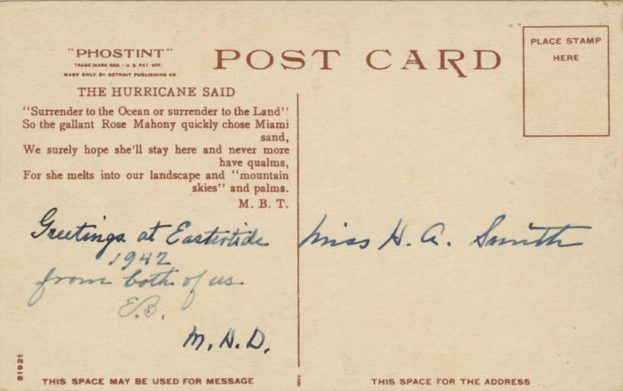 "PHOSTINT"
TRADE MARK REG. - U. S. PAT. OFF.
MADE ONLY BY DETROIT PUBLISHING CO.
POST CARD
PLACE STAMP
HERE
THE HURRICANE SAID
"Surrender to the Ocean or surrender to the Land"
So the gallant Rose Mahony quickly chose Miami
sand,
We surely hope she'll stay here and never more
have qualms,
For she melts into our landscape and "mountain
skies" and palms.
M. B. T.
Greetings at Eastertide
1942
from both of us
E.B.
M. H. D.
Miss H. A. Smith
81921
THIS SPACE MAY BE USED FOR MESSAGE
THIS SPACE FOR THE ADDRESS